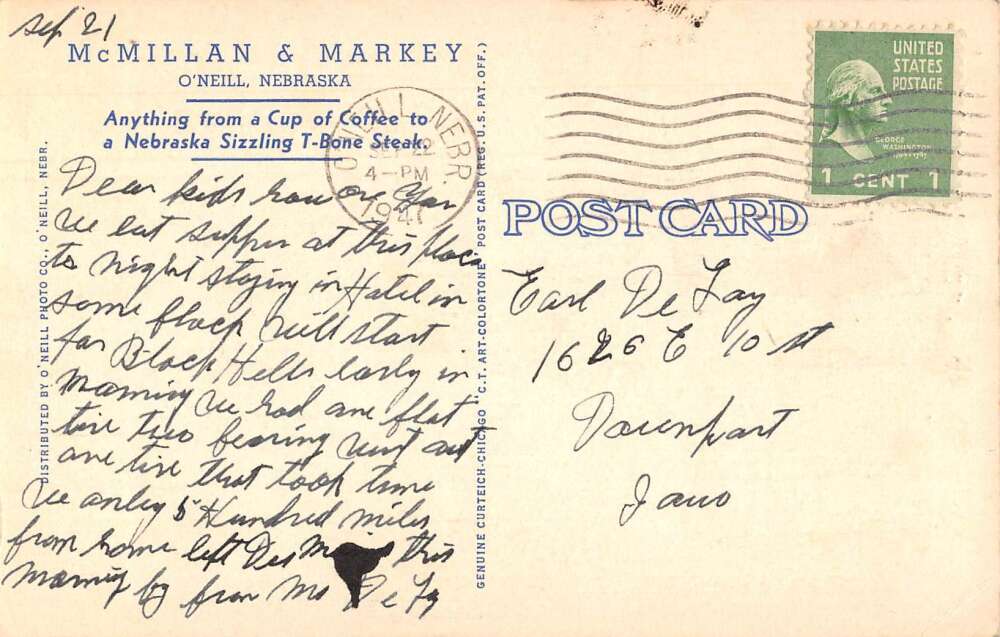 Sep 21
McMILLAN & MARKEY
O'NEILL, NEBRASKA
Anything from a Cup of Coffee to
a Nebraska Sizzling T-Bone Steak.
O'NEILL NEBR.
SEP 22
4-PM
1947
UNITED
STATES
POSTAGE
GEORGE
WASHINGTON
1 CENT 1
POST CARD
Dear kids how are you
we eat supper at this place
to night staying in Hotel in
some place will start
for Black Hills early in
morning we had one flat
tire two bearing went out
one tire that took time
we only 5 Hundred miles
from home left Des this
morning by from Mo De Fay
Earl De Fay
1626 E 10 st
Davenport
Iowo
DISTRIBUTED BY O'NEILL PHOTO CO., O'NEILL, NEBR.
GENUINE CURTEICH-CHICAGO "C.T. ART-COLORTONE" POST CARD (REG. U.S. PAT. OFF.)